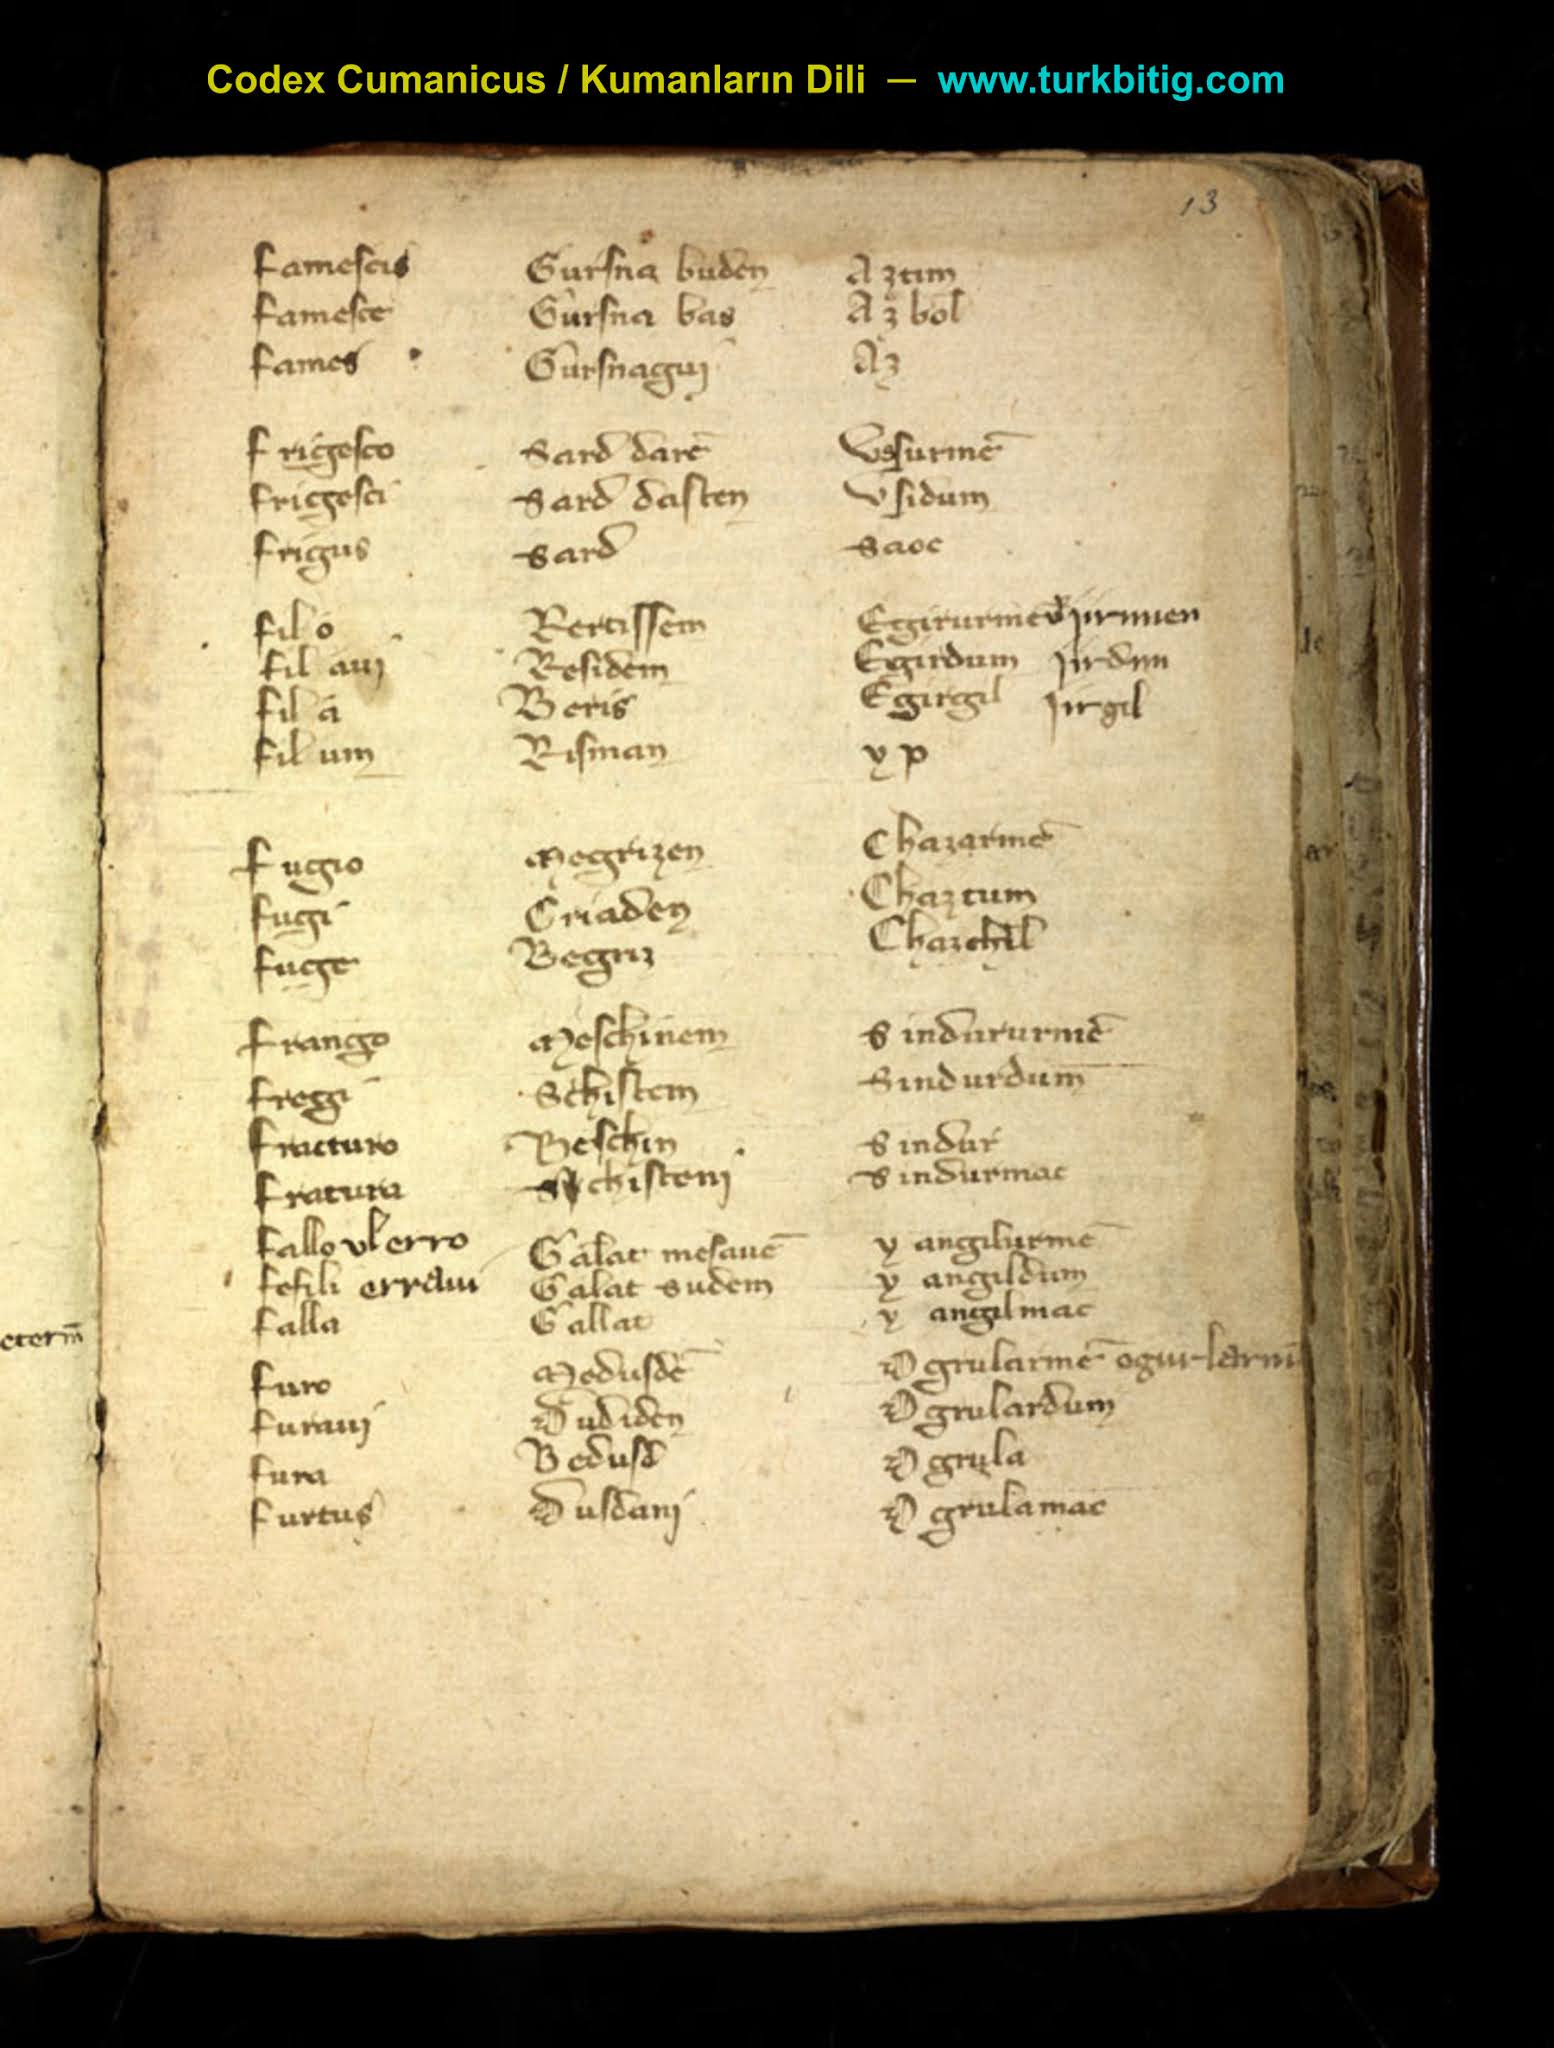 Codex Cumanicus / Kumanların Dili — www.turkbitig.com
13
famescis Gursna buden Aztim
famesce Gursna bas Az bol
fames Gursnaguj Az
frigesco Sard darē usurmē
frigesci Sard dasten vsidum
frigus Sard Saoc
filo Rertissem Egirurmen jirmen
filauj Residem Egirdum jirdim
fila Beris Egirgil jirgil
filum Risman yp
fugio Megrizen Chazarmē
fugi Criaden Chaztum
fuge Begriz Chazchil
frango Meschinem Sindururmē
fregi Schistem Sindurdum
fracturo Beschin Sindur
fratura Schistenj Sindurmac
fallo vl erro Galat mesauē yangilurmē
fefili erraui Galat sudem yangildum
falla Gallat yangilmac
eterm̄
furo Medusdē Ogrularmē ogurlarm
furauj Dudiden Ogrulardum
fura Bedusd Ogrula
furtus Dusdanj Ogrulamac